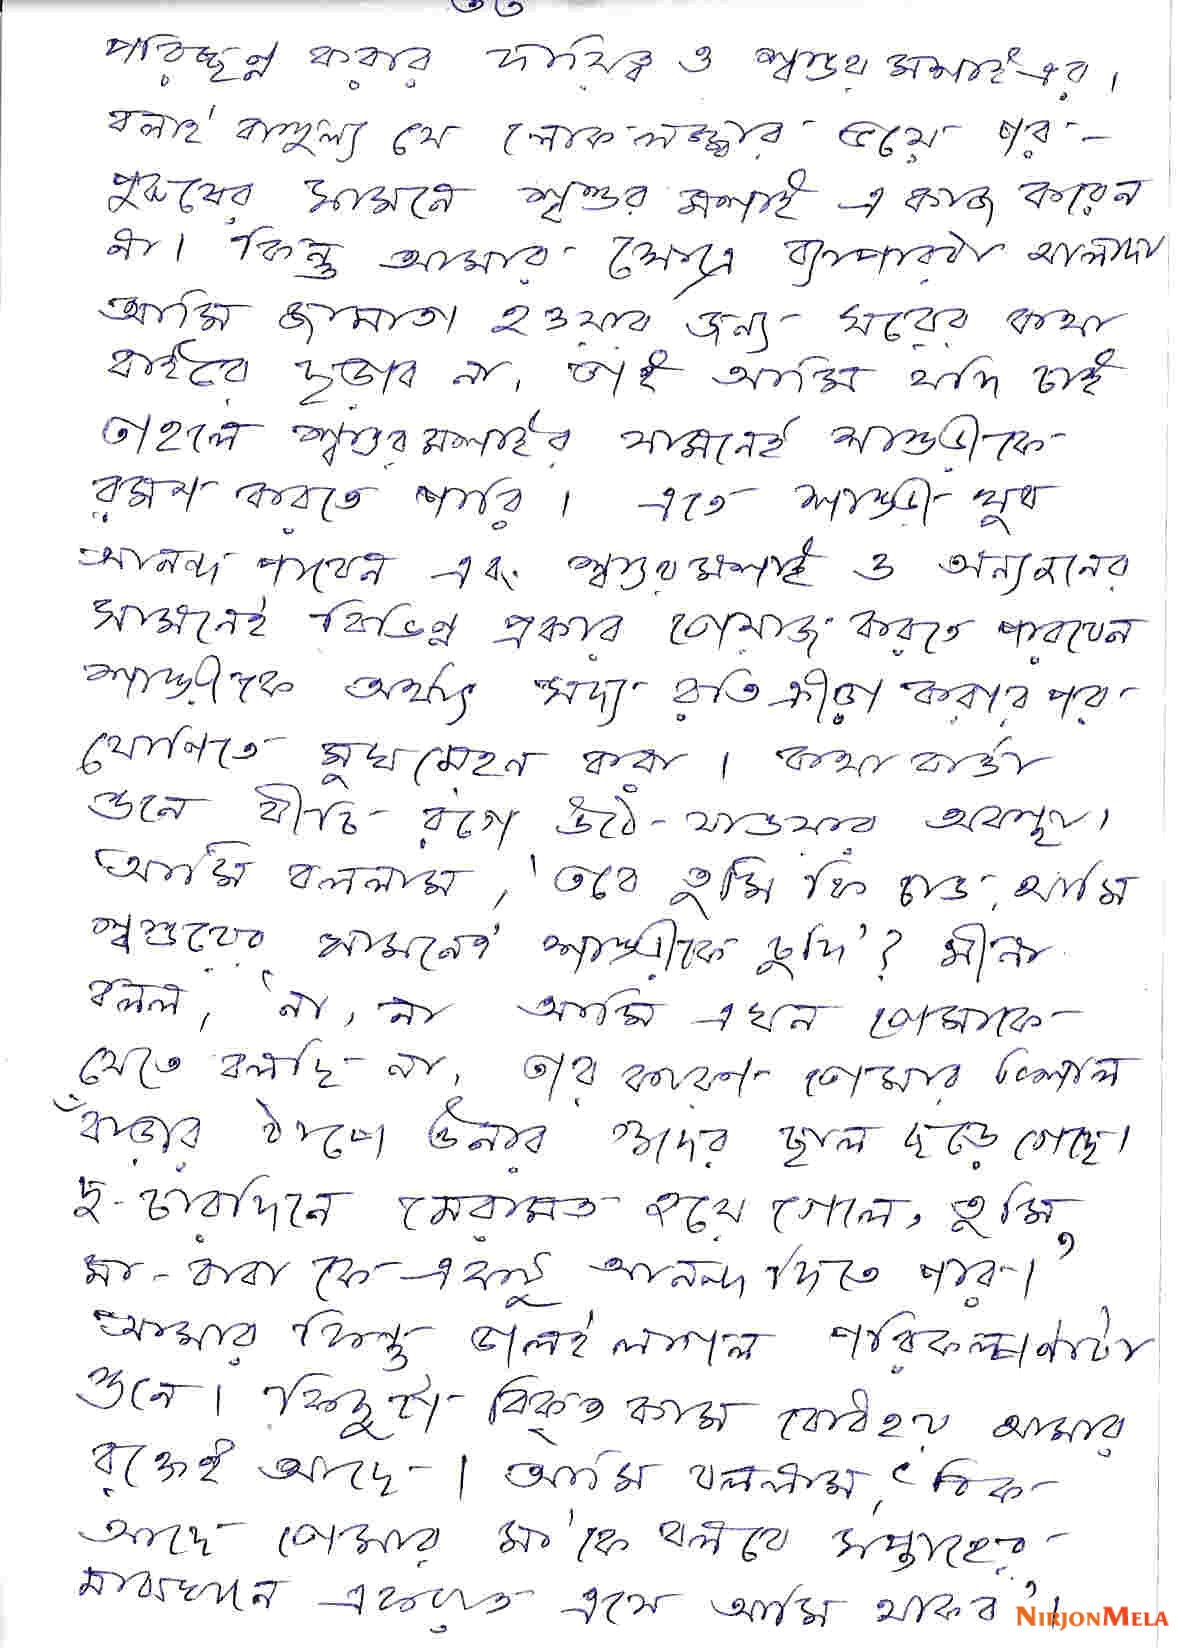 ৩৩
পরিচ্ছন্ন করার দায়িত্ব ও শ্বশুর মশাই-এর।
বলাই বাহুল্য যে লোকলজ্জার ভয়ে পর-
পুরুষের সামনে শ্বশুর মশাই এ কাজ করেন
না। কিন্তু আমার ক্ষেত্রে ব্যাপারটা আলাদা
আমি জামাতা হওয়ার জন্য ঘরের কথা
বাইরে ছড়াব না, তাই আমি যদি চাই
তাহলে শ্বশুর মশাইর সামনেই শাশুড়ীকে
রমণ করতে পারি। এতে শাশুড়ী খুব
আনন্দ পাবেন এবং শ্বশুরমশাই ও অন্যজনের
সামনেই বিভিন্ন প্রকার তোয়াজ করতে পারবেন
শাশুড়ীকে অর্থাৎ সদ্য রতিক্রীড়া করার পর
যোনিতে মুখমেহন করা। কথাবার্তা
শুনে বীচি রগে উঠে যাওয়ার অবস্থা।
আমি বললাম, 'তবে তুমি কি চাও, আমি
শ্বশুরের সামনেই শাশুড়ীকে চুদি'? মীনা
বলল, 'না, না আমি এখন তোমাকে
যেতে বলছি না, তার কারণ তোমার বিশাল
বাঁড়ার ঠাপে ওনার গুদের ছাল ছড়ে গেছে।
দু-চারদিনে মেরামত হয়ে গেলে, তুমি
মা-বাবা কে একটু আনন্দ দিতে পার।'
আমার কিন্তু ভালই লাগল পরিকল্পনাটা
শুনে। কিছুটা বিকৃত কাম বোধহয় আমার
রক্তেই আছে। আমি বললাম, 'ঠিক
আছে তোমার মা'কে বলবে সপ্তাহের
মাঝখানে একরাত এসে আমি থাকব'।
NIRJONMELA